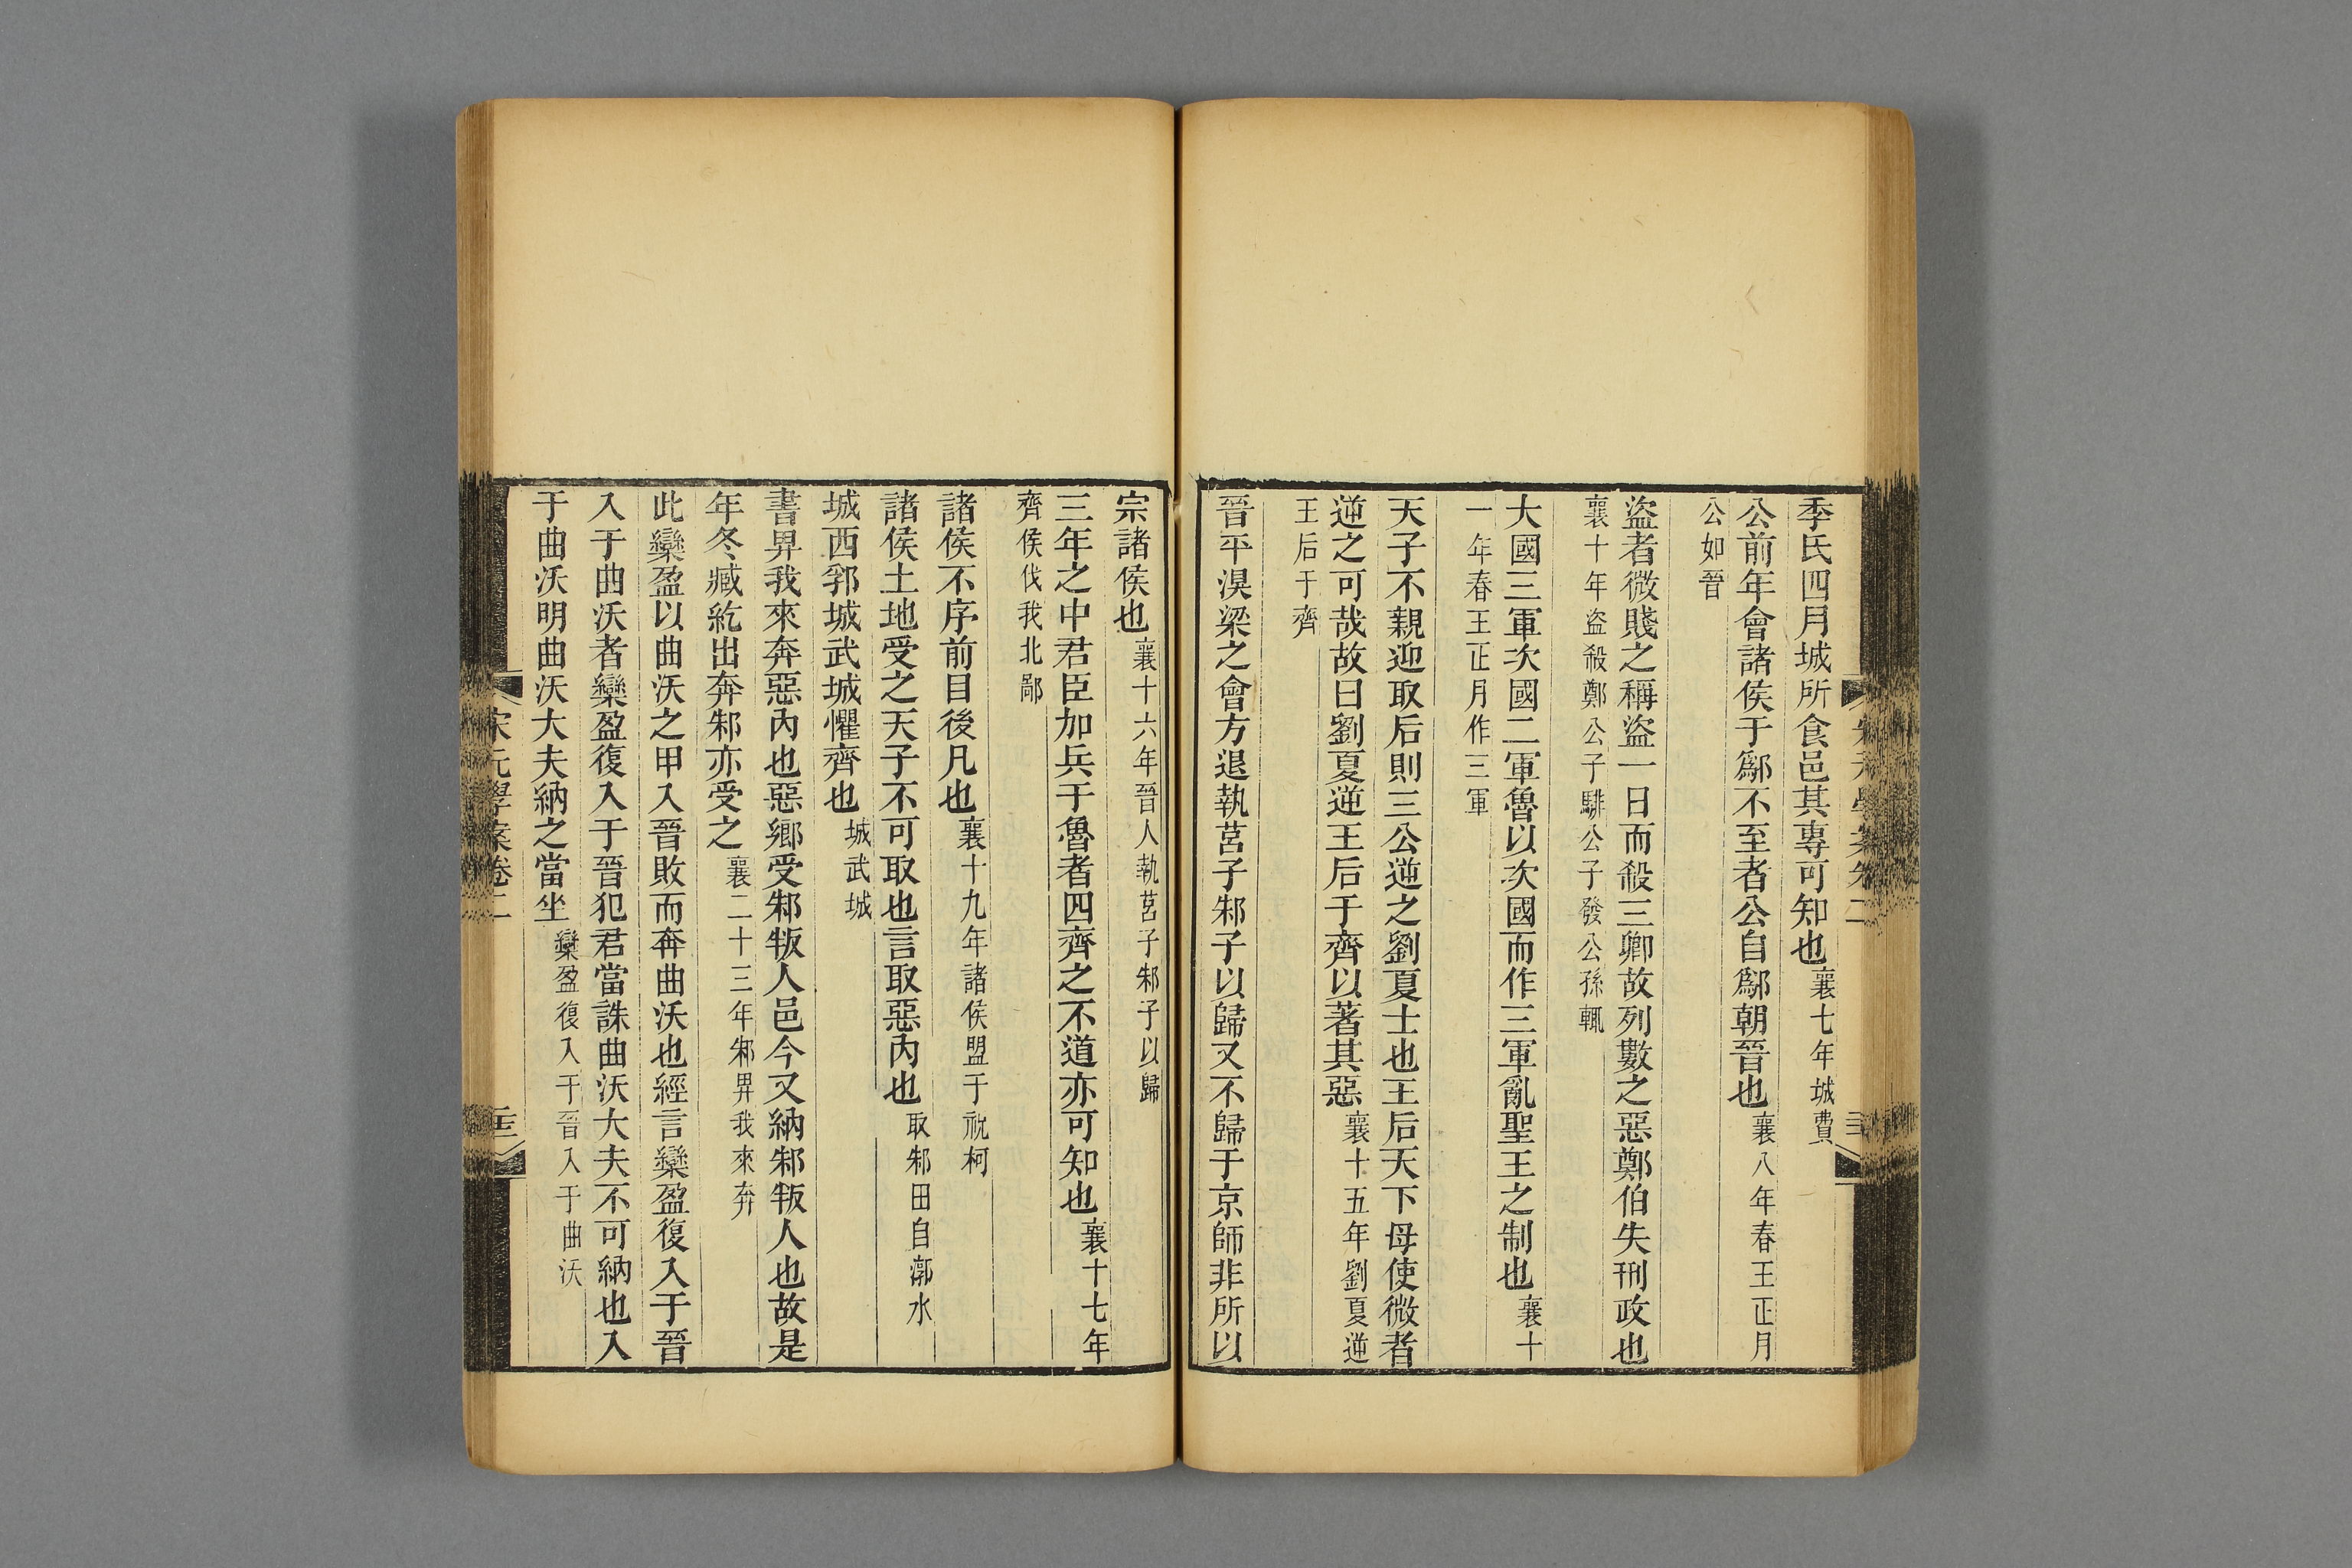 季氏四月城所食邑其專可知也襄七年城費
公前年會諸侯于鄬不至者公自鄬朝晉也襄八年春王正月
公如晉
盜者微賤之稱盜一日而殺三卿故列數之惡鄭伯失刑政也
襄十年盜殺鄭公子騑公子發公孫輒
大國三軍次國二軍魯以次國而作三軍亂聖王之制也襄十
一年春王正月作三軍
天子不親迎取后則三公逆之劉夏士也王后天下母使微者
逆之可哉故曰劉夏逆王后于齊以著其惡襄十五年劉夏逆
王后于齊
晉平湨梁之會方退執莒子邾子以歸又不歸于京師非所以
宗諸侯也襄十六年晉人執莒子邾子以歸
三年之中君臣加兵于魯者四齊之不道亦可知也襄十七年
齊侯伐我北鄙
諸侯不序前目後凡也襄十九年諸侯盟于祝柯
諸侯土地受之天子不可取也言取惡內也取邾田自漷水
城西郛城武城懼齊也城武城
書畀我來奔惡內也惡鄉受邾叛人邑今又納邾叛人也故是
年冬臧紇出奔邾亦受之襄二十三年邾畀我來奔
此欒盈以曲沃之甲入晉敗而奔曲沃也經言欒盈復入于晉
入于曲沃者欒盈復入于晉犯君當誅曲沃大夫不可納也入
于曲沃明曲沃大夫納之當坐欒盈復入于晉入于曲沃
宋元學案卷二